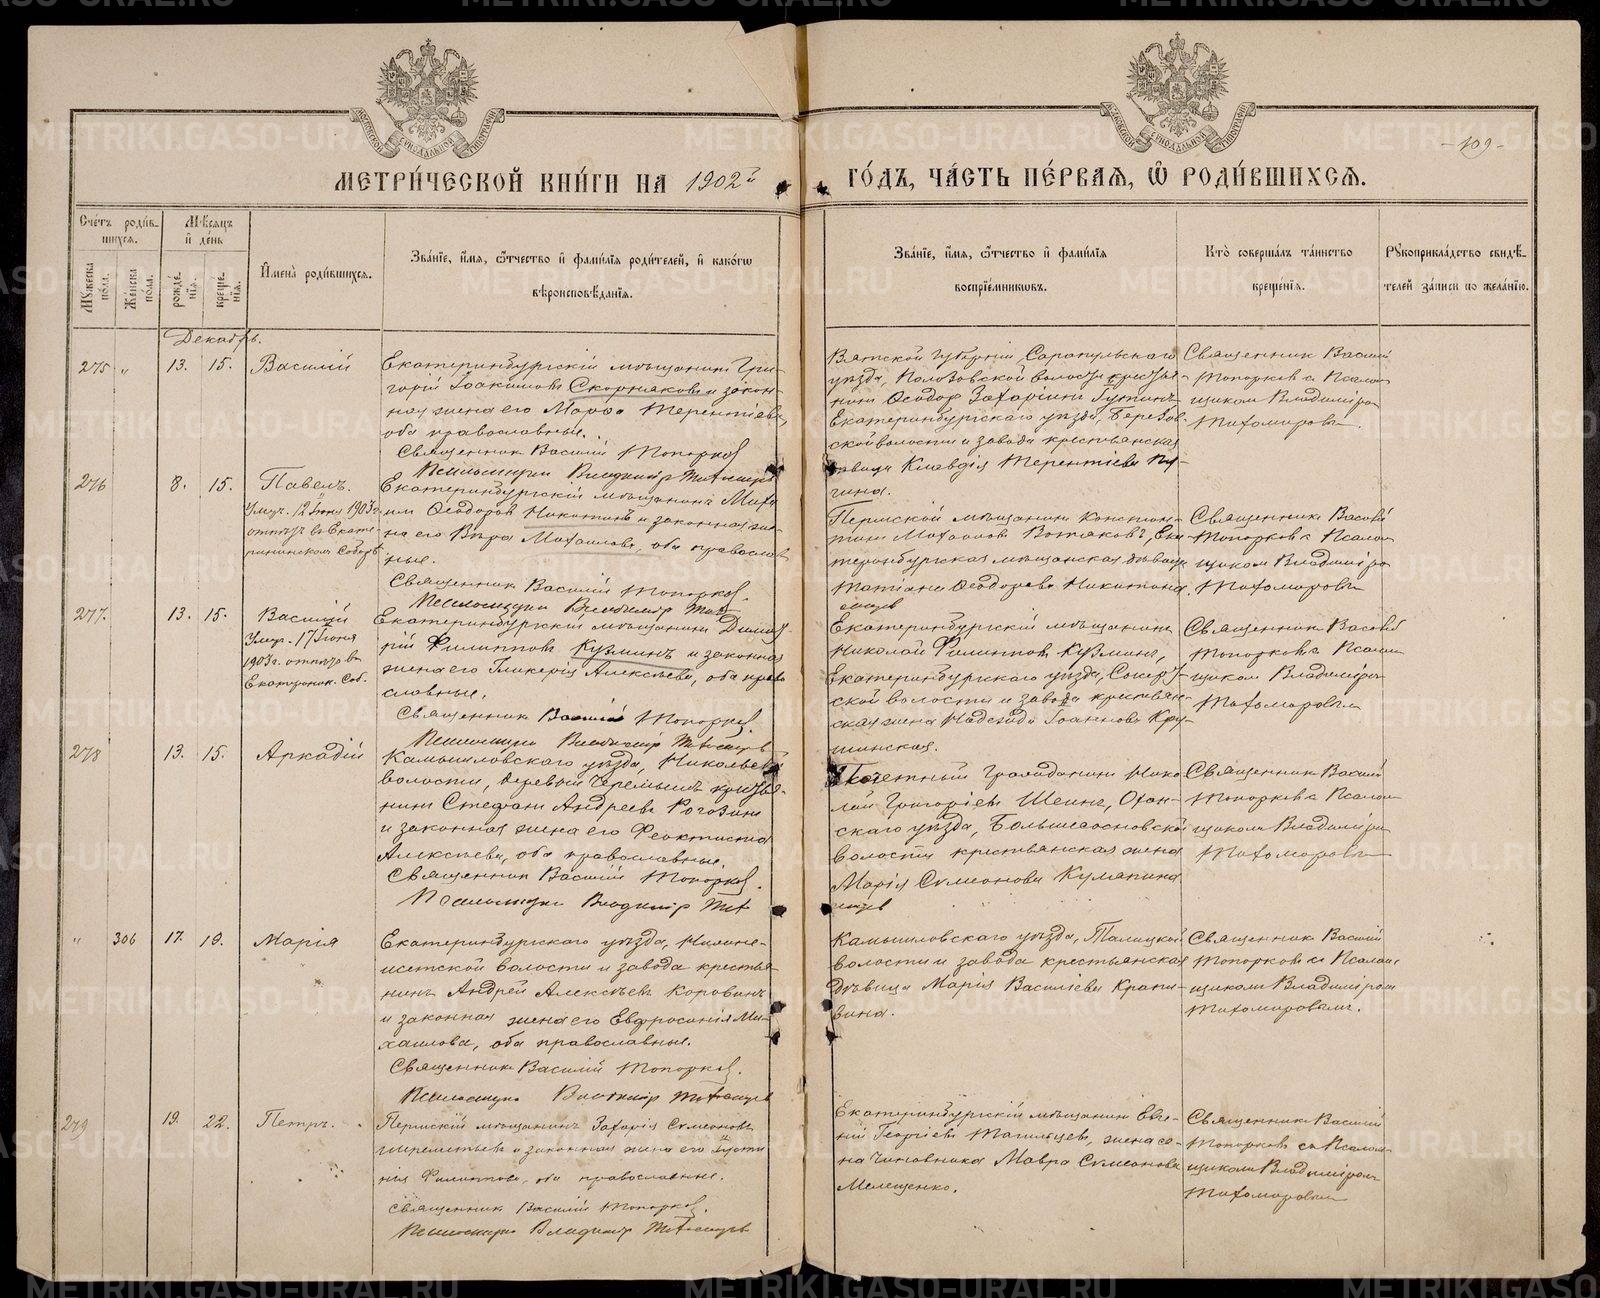 МЕТРИ́ЧЕСКОЙ КНИ́ГИ НА 1902й ГО́ДЪ, ЧА́СТЬ ПЕ́РВАѦ, Ѿ РОДИ́ВШИХСѦ.
109
Сче́тъ роди́в-
шихся.
Му́жеска по́ла.
Же́нска по́ла.
Мѣ́сяцъ
и҆ де́нь
рожде́нїя.
креще́нїя.
И҆мена̀ роди́вшихся.
Зва́нїе, и҆́мя, ѻ҆́тчество и҆ фами́лїя роди́телей, и҆ како́гѡ
вѣроисповѣ́данїя.
Зва́нїе, и҆́мя, ѻ҆́тчество и҆ фами́лїя
воспрїе́мникѡвъ.
Кто̀ соверша́лъ та́инство
креще́нїя.
Рꙋкоприкла́дство свидѣ́-
телей за́писи по жела́нїю.
Декабрь.
275 " 13. 15. Василій
Екатеринбургскій мѣщанинъ Гри-
горій Іоакимовъ Скорняковъ и закон-
ная жена его Марѳа Терентіева,
оба православные.
Священникъ Василій Топорковъ
Псаломщикъ Владиміръ
Вятской губерніи Сарапульскаго
уѣзда, волости крестья-
нинъ Ѳеодоръ Захаріинъ
Екатеринбургскаго уѣзда, Березов-
ской волости и завода крестьянская
дѣвица Клавдія Терентіева
Священникъ Василій
Топорковъ съ Псалом-
щикомъ Владиміромъ
Тихомировымъ.
276 8. 15. Павелъ.
Умер. 12 Іюня 1903 г.
отпѣтъ въ Екате-
рининскомъ Соборѣ
Екатеринбургскій мѣщанинъ Миха-
илъ Ѳеодоровъ Никитинъ и законная же-
на его Вѣра Михаилова, оба православ-
ные.
Священникъ Василій Топорковъ.
Псаломщикъ Владиміръ
Пермской мѣщанинъ Констан-
тинъ Екате-
ринбургская мѣщанская дѣвица
Татіана Ѳеодорова Никитина
Священникъ Василій
Топорковъ съ Псалом-
щикомъ Владиміро
Тихомировымъ
277. 13. 15. Василій
Умер. 17 Іюня
1903 г. отпѣтъ въ
Екатерин. Соб.
Екатеринбургскій мѣщанинъ Димит-
рій Филипповъ Кузминъ и законная
жена его Гликерія Алексѣева, оба право-
славные.
Священникъ Василій Топорковъ.
Псаломщикъ Владиміръ
Екатеринбургскій мѣщанинъ
Николай Филипповъ Кузминъ,
Екатеринбургскаго уѣзда, Сысерт-
ской волости и завода крестьян-
ская жена Надежда Іоаннова Кру-
шинская.
Священникъ Василій
Топорковъ съ Псалом-
щикомъ Владиміромъ
Тихомировымъ
278 13. 15. Аркадій
Камышловскаго уѣзда, Никольской
волости, деревни крестья-
нинъ Стефанъ Андреевъ Рогозинъ
и законная жена его Феоктиста
Алексѣева, оба православные.
Священникъ Василій Топорковъ.
Псаломщикъ Владиміръ
Почетный Гражданинъ Нико-
лай Григоріевъ Шеинъ, Охан-
скаго уѣзда, Большесосновской
волости крестьянская жена
Марія Симеонова Кумякина
Священникъ Василій
Топорковъ съ Псалом-
щикомъ Владиміро
Тихомировымъ
" 306 17. 19. Марія
Екатеринбургскаго уѣзда, Нижне-
исетской волости и завода крестья-
нинъ Андрей Алексѣевъ Коровинъ
и законная жена его Евфросинія Ми-
хаилова, оба православные.
Священникъ Василій Топорковъ.
Псаломщикъ Владиміръ Тихомировъ
Камышловскаго уѣзда, Талицкой
волости и завода крестьянская
дѣвица Марія Василіева Крапи-
вина.
Священникъ Василій
Топорковъ съ Псалом-
щикомъ Владиміромъ
Тихомировымъ.
279 19. 22. Петръ.
Пермскій мѣщанинъ Захарія Симеоновъ
и законная жена его Іусти-
нія Филиппова, оба православные.
Священникъ Василій Топорковъ.
Псаломщикъ Владиміръ Тихомировъ
Екатеринбургскій мѣщанинъ Евге-
ній Георгіевъ Тагильцевъ, жена са-
на чиновника Мавра Симеонова
Мелещенко.
Священникъ Василій
Топорковъ съ Псалом-
щикомъ Владиміромъ
Тихомировымъ
METRIKI.GASO-URAL.RU